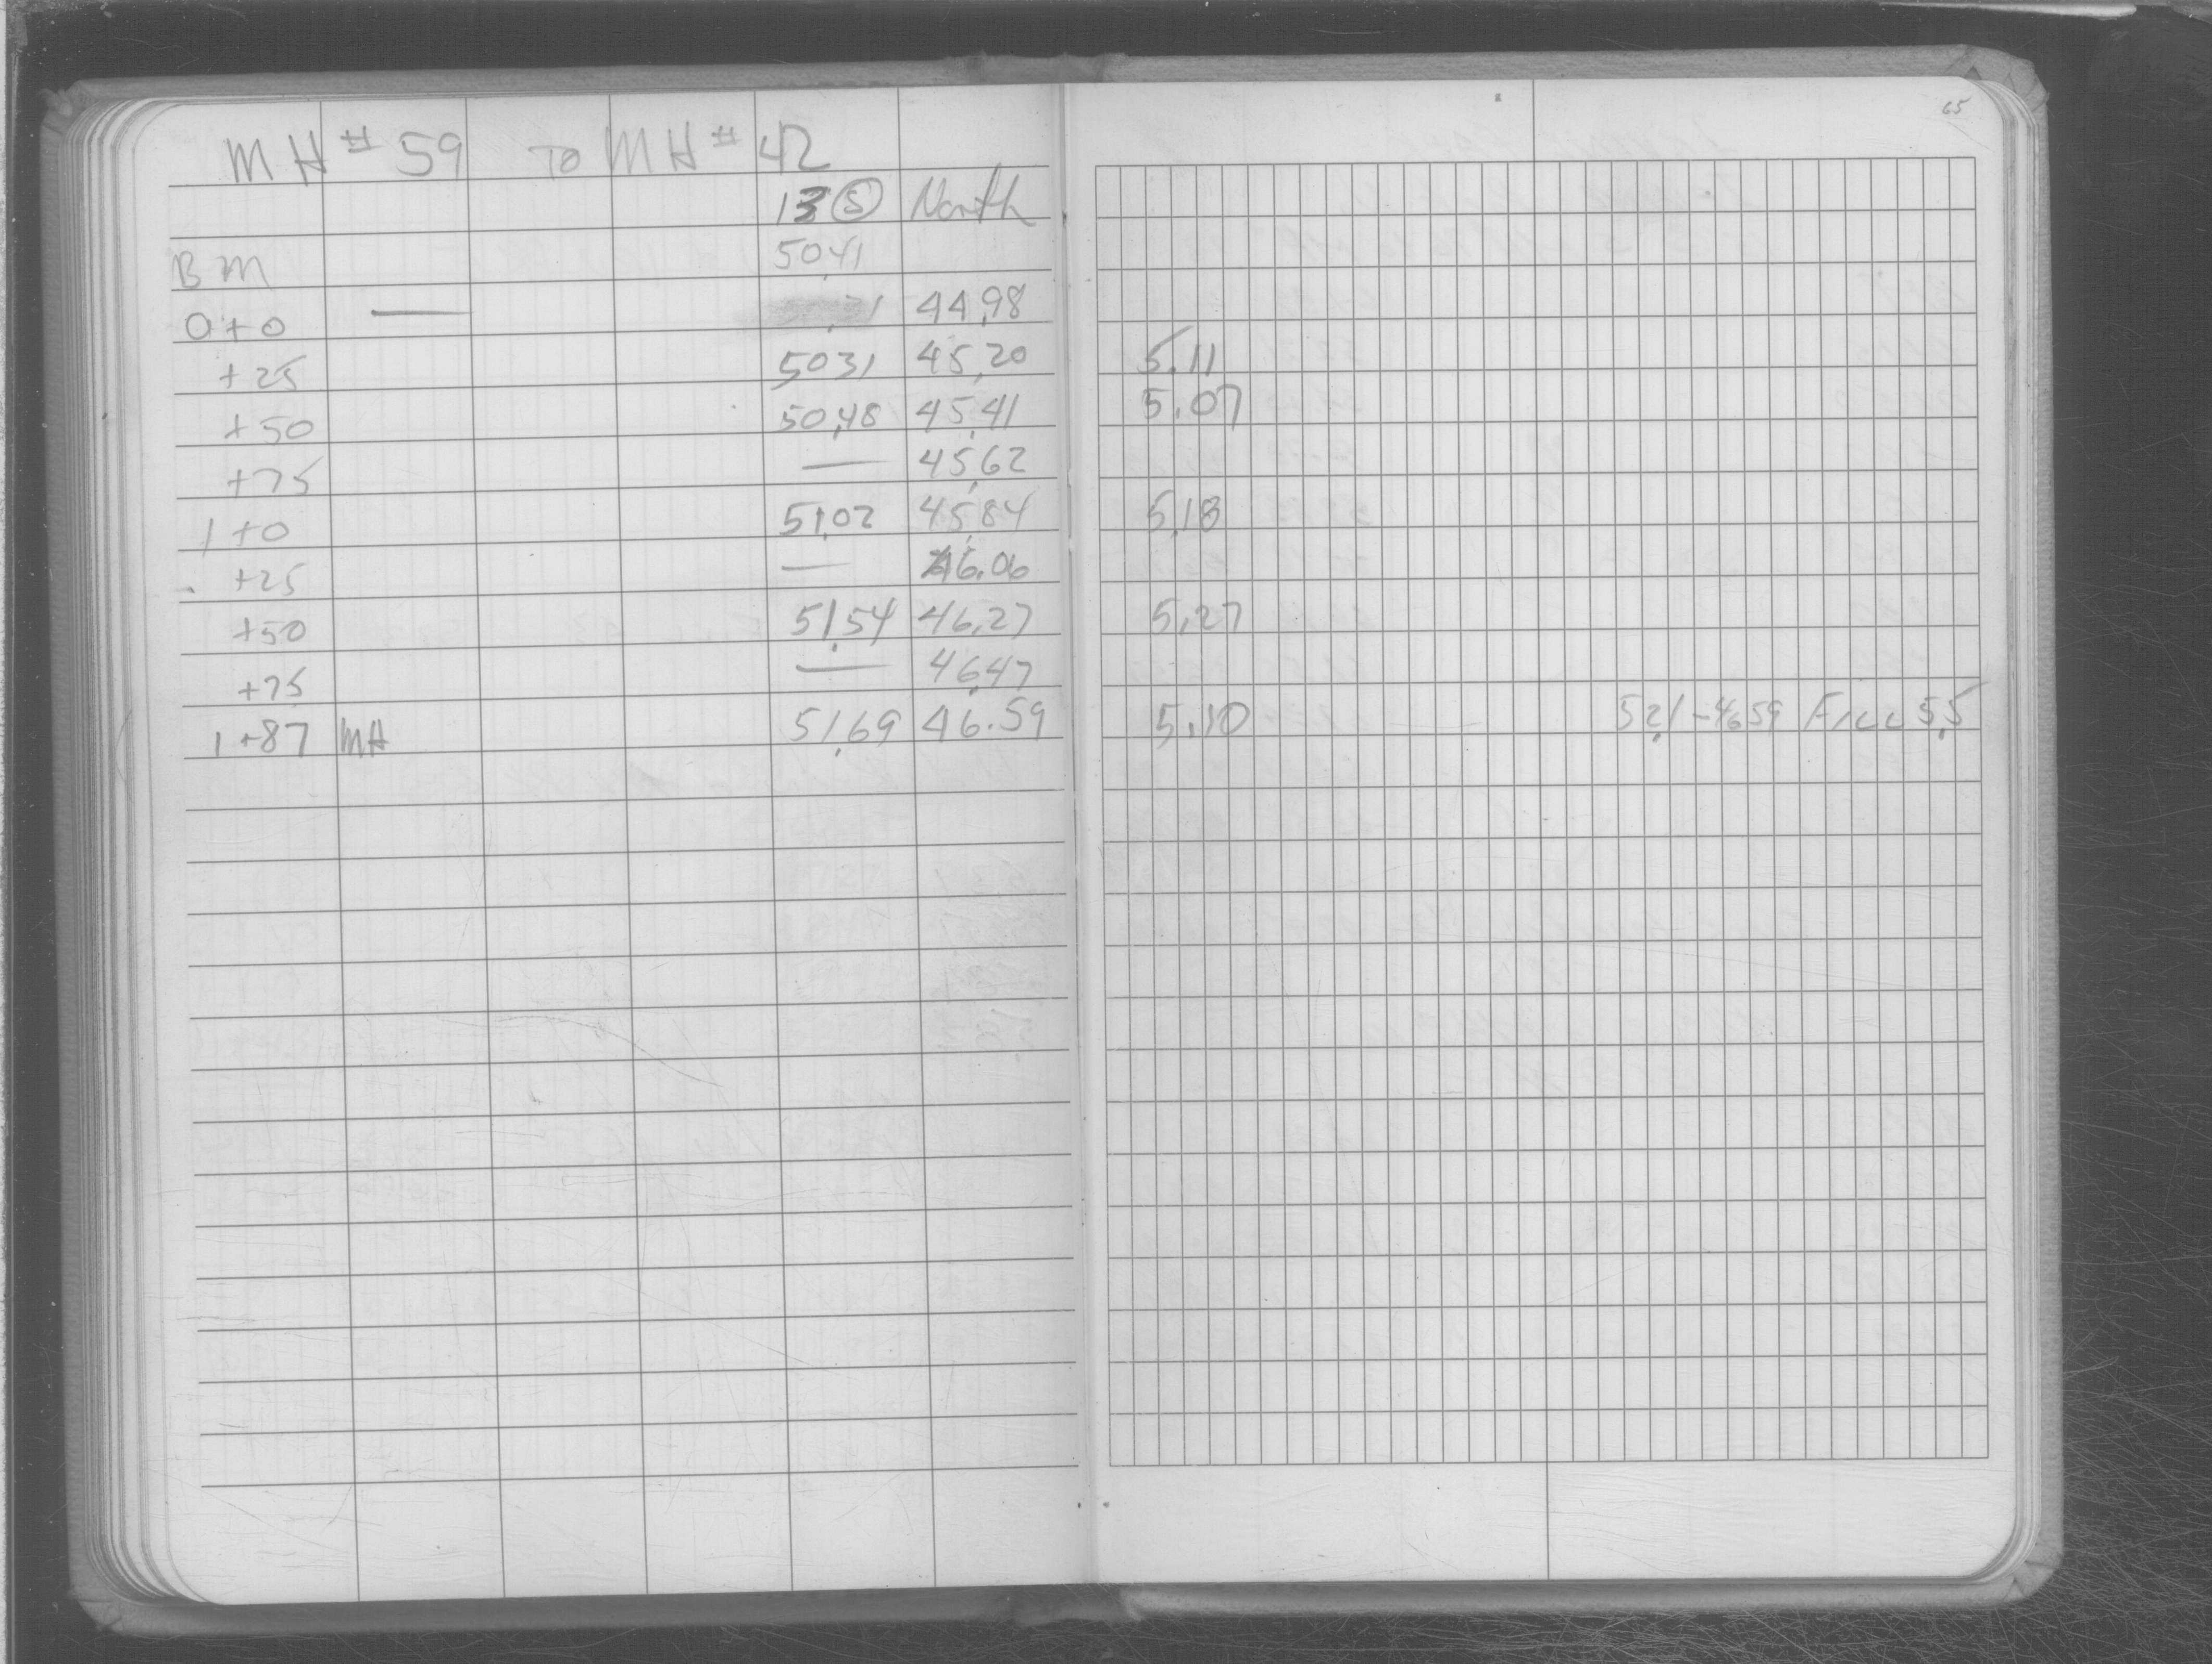 65
MH # 59 TO MH # 42
13 (S) North
BM 50.41
0+0 — 44.98
+25 50.31 45.20 5.11
+50 50.48 45.41 5.07
+75 — 45.62
1+0 51.02 45.84 5.18
+25 — 46.06
+50 51.54 46.27 5.27
+75 — 46.47
1+87 MH 51.69 46.59 5.10 52.1 - 46.59 Fill 5.5